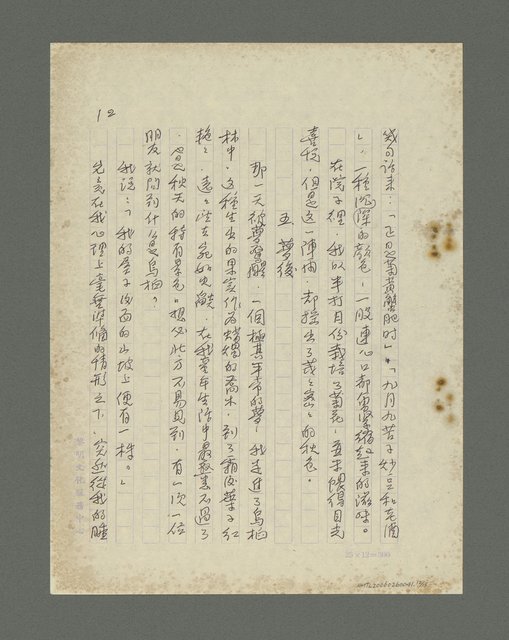 12
幾句話來：「正是菊黃蟹肥時」「九月九苦子炒豆和老酒
」，一種深深的顏色，一股連心口都會緊縮起來的滋味。
在院子裡，我以半打月份栽培了菊花，並未獲得目光
喜悅，但是這一陣雨，却探出了茂茂密密的秋色。
五 夢後
那一天被夢驚醒，一個極其平常的夢，我走進了烏桕
林中，這種生出的果實作為蠟燭的喬木，到了霜後葉子紅
艷艷，遠遠望去宛如火餤，在我童年生活中最熟悉不過了
，是秋天的特有景色。想必此方不易見到，有一次一位
朋友就問到什麼是烏桕？
我說：「我的房子後面的山坡上便有一株。」
完全在我心理上毫無準備的情形之下，突然從我的睡
黎明文化服務中心
25×12=300
NMTL20060260041